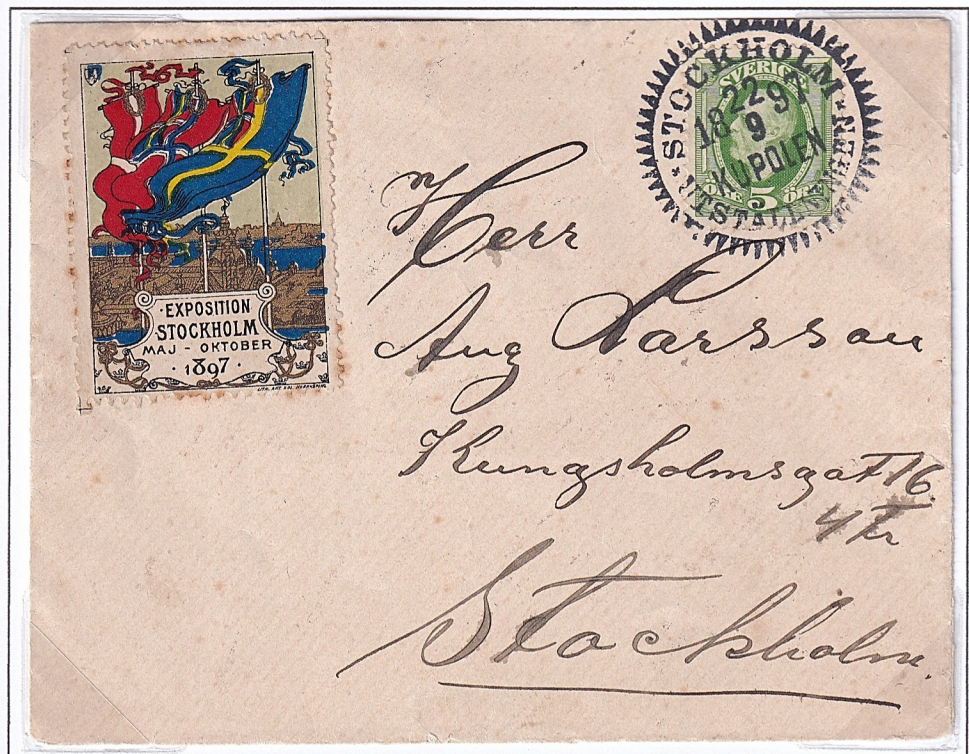 EXPOSITION
STOCKHOLM
MAJ - OKTOBER
· 1897 ·
STOCKHOLM
SVERIGE
22 9
18 97
KUPOLEN
UTSTÄLLNINGEN
ÖRE 5 ÖRE
Herr
Aug Larsson
Kungsholmsgat 16.
4 Tr
Stockholm.